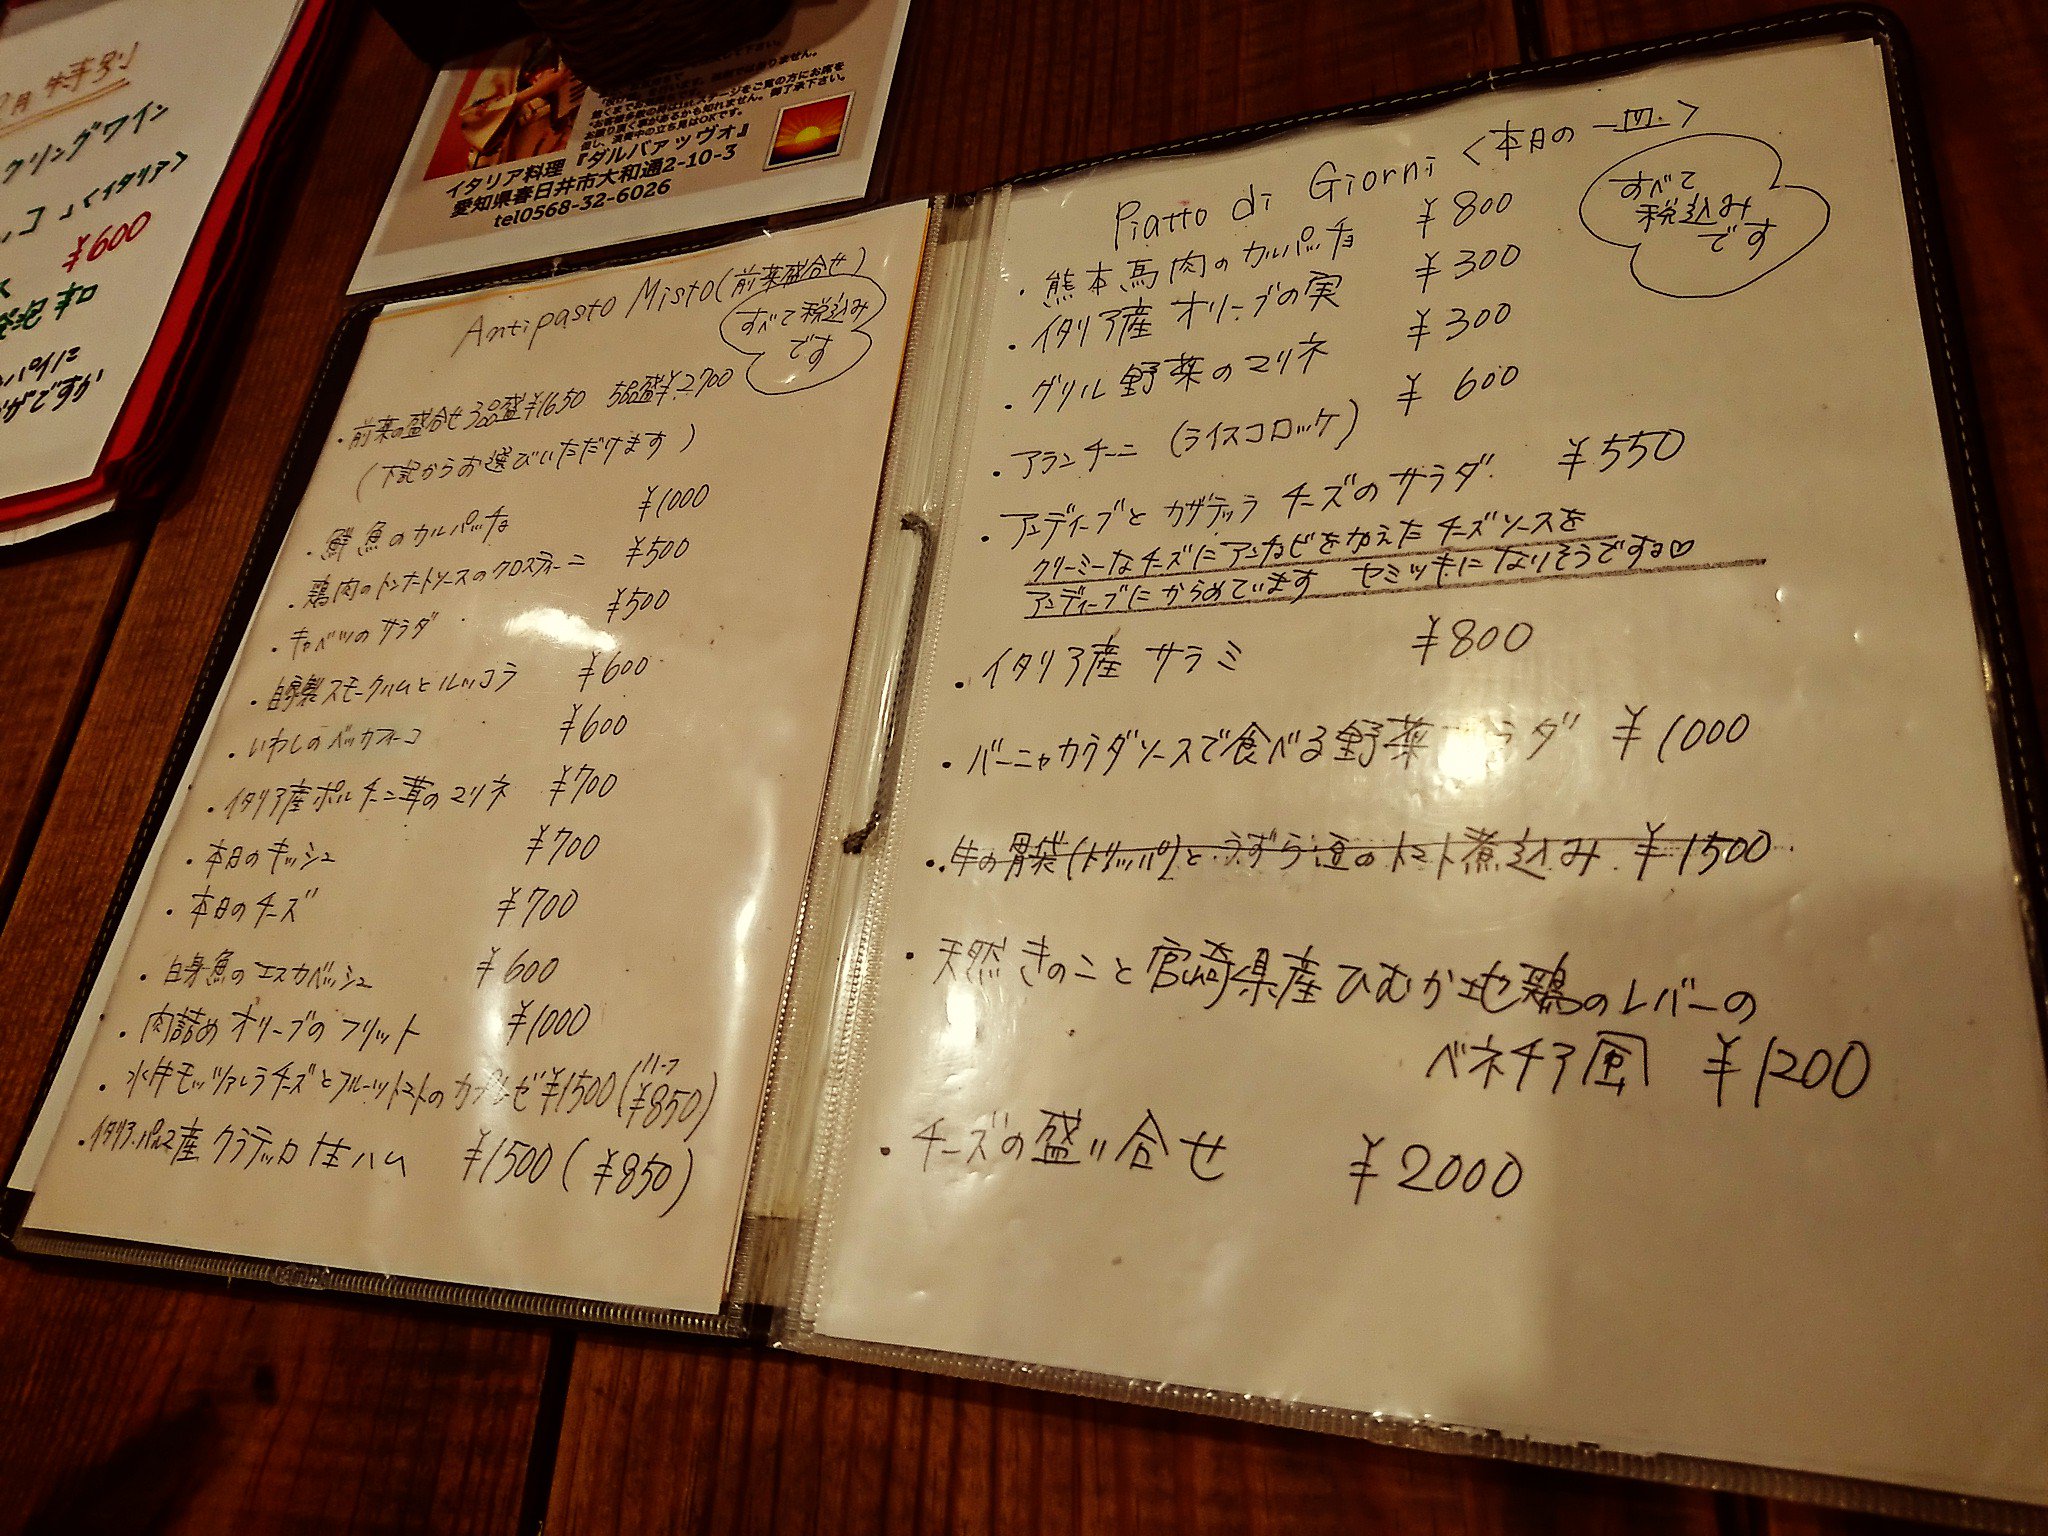 月特別
クリングワイン
コ」<イタリア>
¥600
イタリア料理『ダルバァッヴォ』
愛知県春日井市大和通2-10-3
tel0568-32-6026
Antipasto Misto(前菜盛合せ)
すべて税込み
です
・前菜の盛合せ3品盛¥1650 5品盛¥2700
(下記からお選びいただけます)
・鮮魚のカルパッチョ ¥1000
・鶏肉のトンナートソースのクロスティーニ ¥500
・キャベツのサラダ ¥500
・自家製スモークハムとルッコラ ¥600
・いわしのベッカフィーコ ¥600
・イタリア産ポルチーニ茸のマリネ ¥700
・本日のキッシュ ¥700
・本日のチーズ ¥700
・白身魚のエスカベッシュ ¥600
・肉詰めオリーブのフリット ¥1000
・水牛モッツァレラチーズとフルーツトマトのカプレーゼ¥1500(ハーフ¥850)
・イタリア・パルマ産クラテッロ生ハム ¥1500(¥850)
Piatto di Giorni <本日の一皿>
すべて
税込み
です
・熊本馬肉のカルパッチョ ¥800
・イタリア産オリーブの実 ¥300
・グリル野菜のマリネ ¥300
・アランチーニ (ライスコロッケ) ¥600
・アンディーブとカザテッラチーズのサラダ ¥550
クリーミーなチーズにアンチョビをかえたチーズソースを
アンディーブにからめています ヤミツキになりそうですョ♡
・イタリア産サラミ ¥800
・バーニャカウダソースで食べる野菜サラダ ¥1000
・牛の胃袋(トリッパ)とうずら豆のトマト煮込み ¥1500
・天然きのこと宮崎県産ひむか地鶏のレバーの
ベネチア風 ¥1200
・チーズの盛り合せ ¥2000